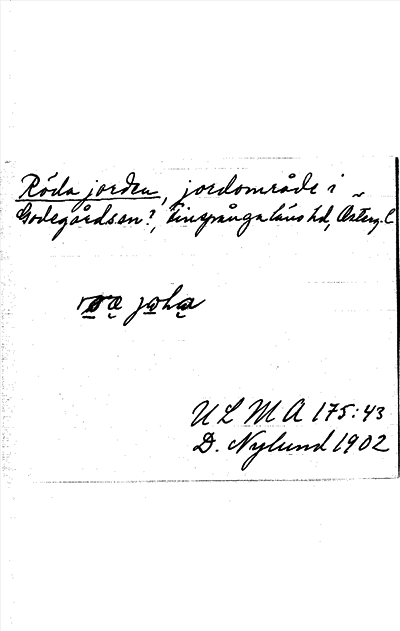 Röda jorden, jordområde i
Godegårdssn?, Finspångaläns hd, Österg. l.
ULMA 175:43
D. Nylund 1902